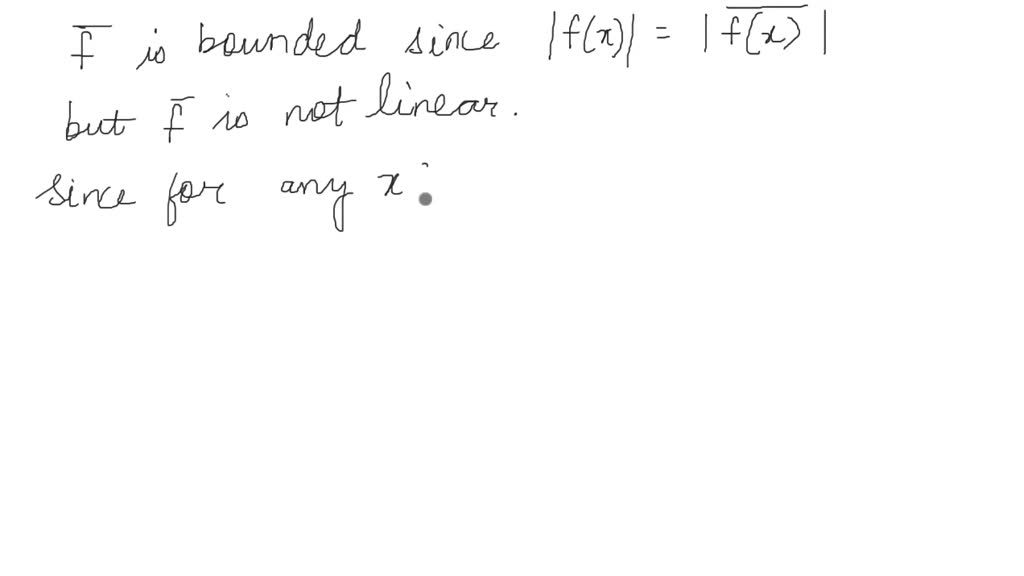 f̅ is bounded since |f(x)| = |\overline{f(x)}|
but f̅ is not linear.
since for any x